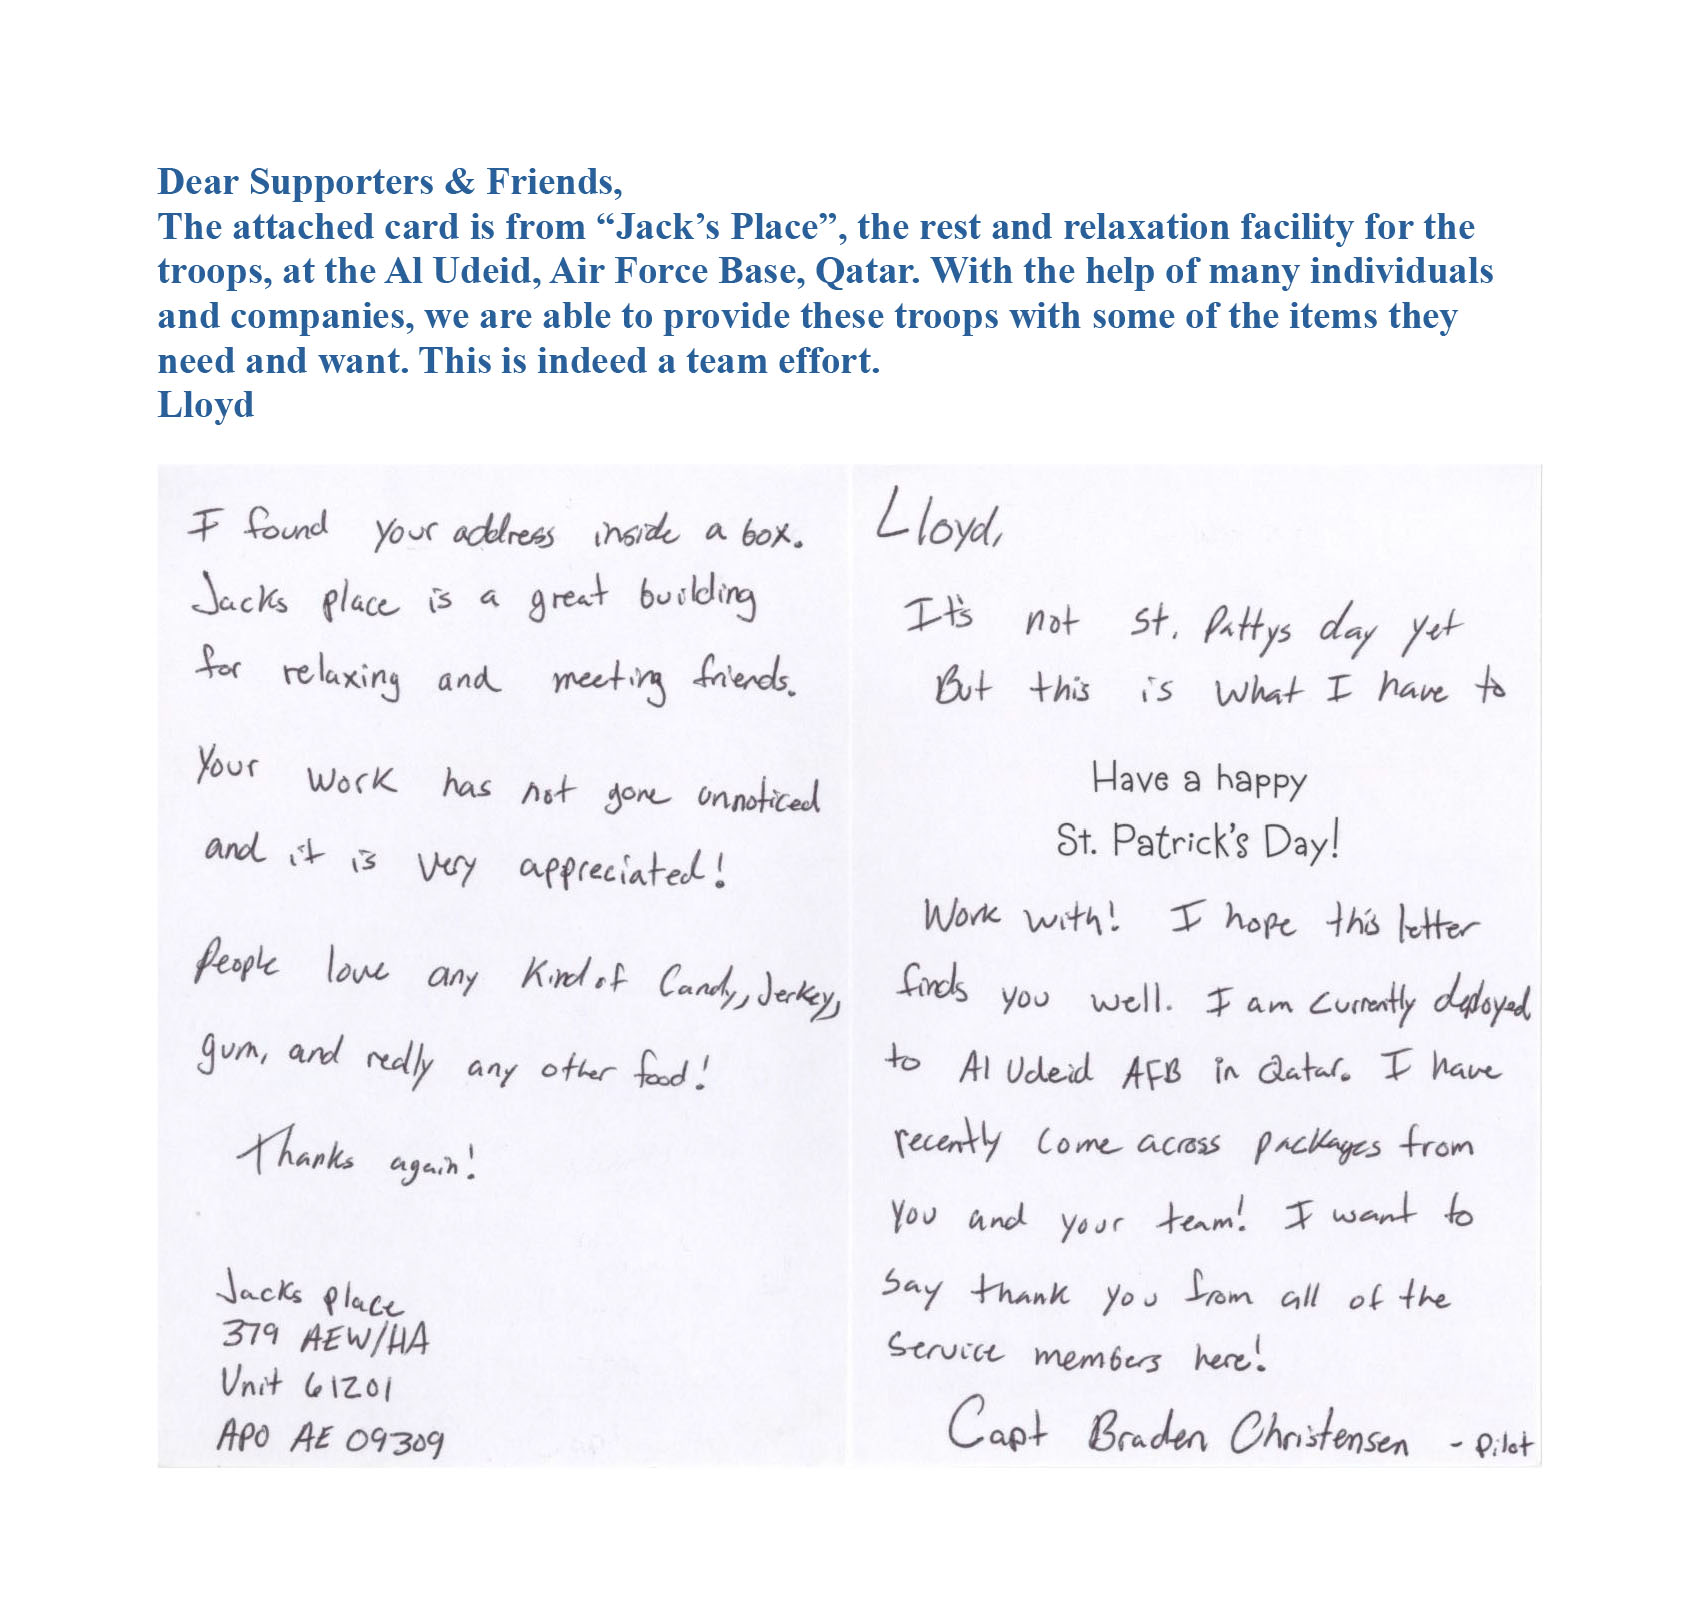 Dear Supporters & Friends,
The attached card is from “Jack’s Place”, the rest and relaxation facility for the
troops, at the Al Udeid, Air Force Base, Qatar. With the help of many individuals
and companies, we are able to provide these troops with some of the items they
need and want. This is indeed a team effort.
Lloyd
I found your address inside a box.
Jacks place is a great building
for relaxing and meeting friends.
Your work has not gone unnoticed
and it is very appreciated!
People love any kind of Candy, Jerkey,
gum, and really any other food!
Thanks again!
Jacks place
379 AEW/HA
Unit 61201
APO AE 09309
Lloyd,
It's not St. Pattys day yet
But this is what I have to
Have a happy
St. Patrick's Day!
Work with! I hope this letter
finds you well. I am currently deployed
to Al Udeid AFB in Qatar. I have
recently come across packages from
you and your team! I want to
say thank you from all of the
service members here!
Capt Braden Christensen - Pilot